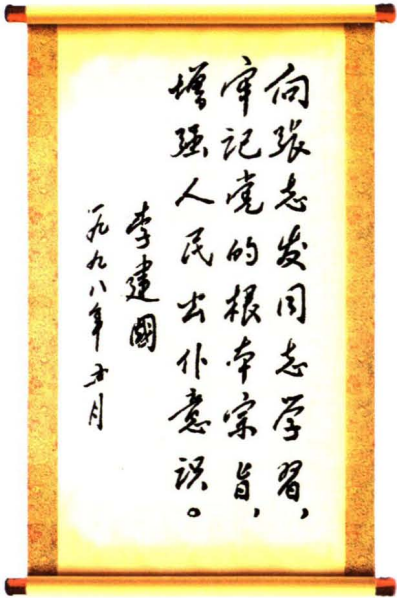 向张志发同志学習，
牢记党的根本宗旨，
增强人民公仆意识。
李建國
一九九八年十月